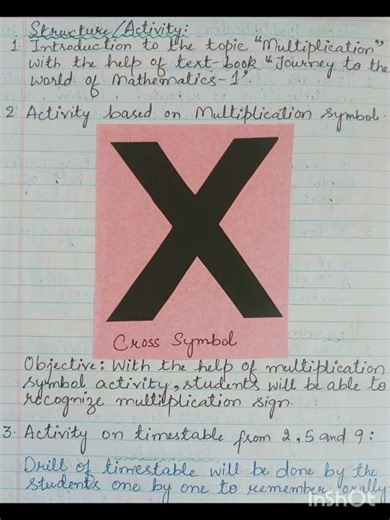 Structure/Activity:
1. Introduction to the topic "Multiplication"
with the help of text-book "Journey to the
world of Mathematics-1".
2. Activity based on Multiplication symbol.
X
Cross Symbol
Objective: With the help of multiplication
symbol activity, students will be able to
recognize multiplication sign.
3. Activity on timestable from 2, 5 and 9:
Drill of timestable will be done by the
students one by one to remember orally
InShOt